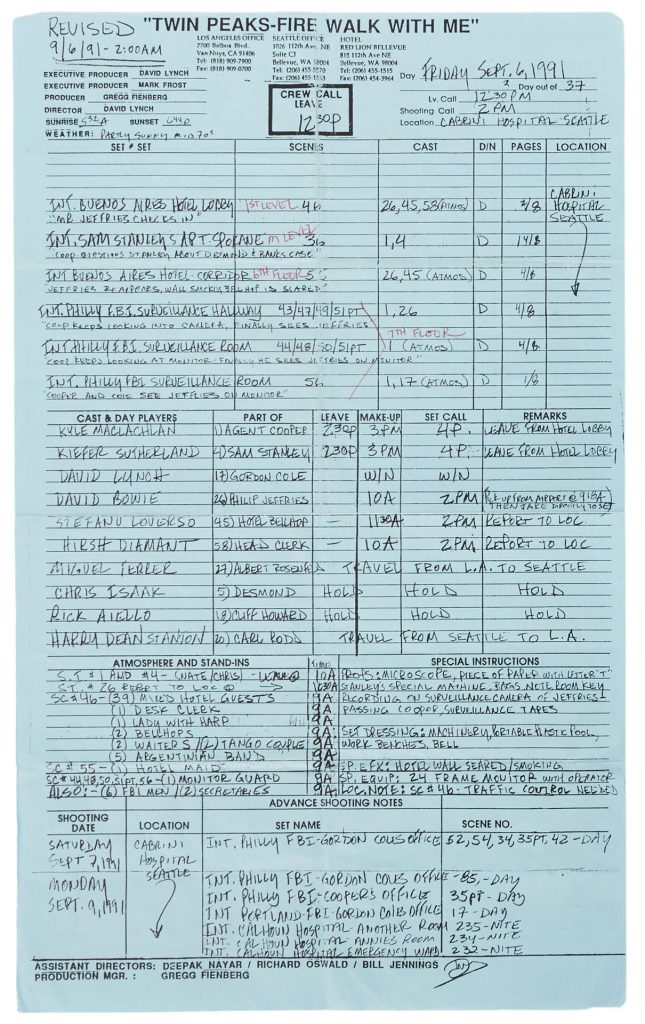 REVISED
9/6/91 - 2:00AM
"TWIN PEAKS-FIRE WALK WITH ME"
LOS ANGELES OFFICE
2700 Balboa Blvd.
Van Nuys, CA 91406
Tel: (818) 909-7900
Fax: (818) 909-0700
SEATTLE OFFICE
1026 112th Ave. NE
Suite C3
Bellevue, WA 98004
HOTEL
RED LION BELLEVUE
815 112th Ave. NE
Bellevue, WA 98004
Tel: (206) 455-1515
EXECUTIVE PRODUCER DAVID LYNCH
EXECUTIVE PRODUCER MARK FROST
PRODUCER GREGG FIENBERG
DIRECTOR DAVID LYNCH
SUNRISE 532A SUNSET 644P
WEATHER: PARTLY SUNNY MID 70s
CREW CALL
LEAVE
1230P
Day FRIDAY SEPT. 6, 1991
2 Day out of 37
Lv. Call 1230PM
Shooting Call 2PM
Location CABRINI HOSPITAL SEATTLE
SET # SET SCENES CAST D/N PAGES LOCATION
INT. BUENOS AIRES HOTEL LOBBY 1ST LEVEL 46 26,45,58 (ATMOS) D 3/8 CABRINI HOSPITAL SEATTLE
"MR JEFFRIES CHECKS IN"
INT. SAM STANLEY'S APT. SPOKANE M LEVEL 36 1,4 D 1 4/8
"COOP QUESTIONS STANLEY ABOUT DESMOND & BANKS CASE"
INT BUENOS AIRES HOTEL-CORRIDOR 6TH FLOOR 55 26,45 (ATMOS) D 4/8
"JEFFRIES REAPPEARS, WALL SMOKEY, BELLHOP IS SCARED"
INT. PHILLY F.B.I. SURVEILLANCE HALLWAY 43/47/49/51PT 1,26 D 4/8
"COOP KEEPS LOOKING INTO CAMERA, FINALLY SEES JEFFRIES"
7TH FLOOR
INT. PHILLY F.B.I. SURVEILLANCE ROOM 44/48/50/51PT 1 (ATMOS) D 4/8
"COOP KEEPS LOOKING AT MONITOR-FINALLY HE SEES JEFFRIES ON MONITOR"
INT. PHILLY FBI SURVEILLANCE ROOM 56 1,17 (ATMOS) D 1/8
"COOPER AND COLE SEE JEFFRIES ON MONITOR"
CAST & DAY PLAYERS PART OF LEAVE MAKE-UP SET CALL REMARKS
KYLE MACLACHLAN 1) AGENT COOPER 230P 3PM 4P. LEAVE FROM HOTEL LOBBY
KIEFER SUTHERLAND 4) SAM STANLEY 230P 3PM 4P. LEAVE FROM HOTEL LOBBY
DAVID LYNCH 17) GORDON COLE W/N W/N
DAVID BOWIE 26) PHILIP JEFFRIES 10A 2PM PICK UP FROM AIRPORT @ 918A THEN TAKE DIRECTLY TO SET
STEFANO LOVERSO 45) HOTEL BELLHOP — 1130A 2PM REPORT TO LOC
HIRSH DIAMANT 58) HEAD CLERK — 10A 2PM REPORT TO LOC
MIGUEL FERRER 27) ALBERT ROSENFELD TRAVEL FROM L.A. TO SEATTLE
CHRIS ISAAK 5) DESMOND HOLD HOLD HOLD
RICK AIELLO 18) CLIFF HOWARD HOLD HOLD HOLD
HARRY DEAN STANTON 20) CARL RODD TRAVEL FROM SEATTLE TO L.A.
ATMOSPHERE AND STAND-INS TIME SPECIAL INSTRUCTIONS
S.I. #1 AND #4-(NATE/CHRIS)-LEAVE @ 10A PROPS: MICROSCOPE, PIECE OF PAPER WITH LETTER 'T'
S.I. #26 REPORT TO LOC @ 1030A STANLEY'S SPECIAL MACHINE, BAGS, NOTE, ROOM KEY
SC #46-(39) MIXED HOTEL GUESTS 9A RECORDING ON SURVEILLANCE CAMERA OF JEFFRIES
(1) DESK CLERK 9A PASSING COOPER, SURVEILLANCE TAPES
(1) LADY WITH HARP 9A
(2) BELLHOPS 9A SET DRESSING: MACHINERY, PORTABLE PLASTIC POOL,
(2) WAITERS / (2) TANGO COUPLE 9A WORK BENCHES, BELL
(5) ARGENTINIAN BAND 9A
SC #55-(1) HOTEL MAID 9A SP. EFX: HOTEL WALL SEARED/SMOKING
SC #44,48,50,51PT,56-(1) MONITOR GUARD 9A SP. EQUIP: 24 FRAME MONITOR WITH OPERATOR
ALSO:-(6) FBI MEN / (2) SECRETARIES 9A LOC. NOTE: SC #46-TRAFFIC CONTROL NEEDED
ADVANCE SHOOTING NOTES
SHOOTING DATE LOCATION SET NAME SCENE NO.
SATURDAY SEPT 7, 1991 CABRINI HOSPITAL SEATTLE INT. PHILLY FBI-GORDON COLES OFFICE 52,54,34,35PT,42-DAY
MONDAY SEPT. 9, 1991 INT. PHILLY FBI-GORDON COLES OFFICE -85,-DAY
INT. PHILLY FBI-COOPER'S OFFICE 35PT-DAY
INT PORTLAND-FBI-GORDON COLES OFFICE 17-DAY
INT. CALHOUN HOSPITAL-ANOTHER ROOM 235-NITE
INT. CALHOUN HOSPITAL ANNIES ROOM 234-NITE
INT. CALHOUN HOSPITAL EMERGENCY WARD 232-NITE
ASSISTANT DIRECTORS: DEEPAK NAYAR / RICHARD OSWALD / BILL JENNINGS
PRODUCTION MGR. : GREGG FIENBERG